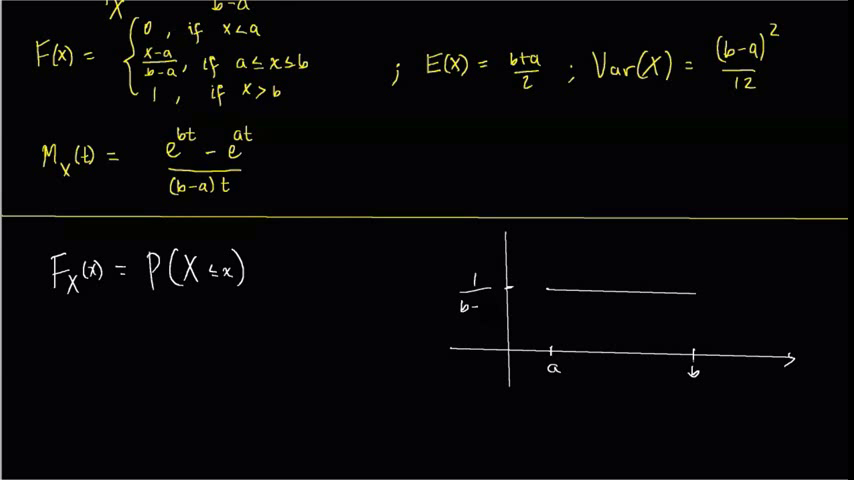 X b-a
F(x) = { 0 , if x<a
x-a/b-a , if a≤x≤b
1 , if x>b
; E(X) = b+a/2 ; Var(X) = (b-a)²/12
M_X(t) = e^bt - e^at / (b-a)t
F_X(x) = P(X ≤ x)
1/b-
a b